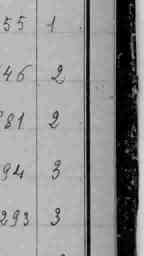 55 1
46 2
81 2
94 3
293 3